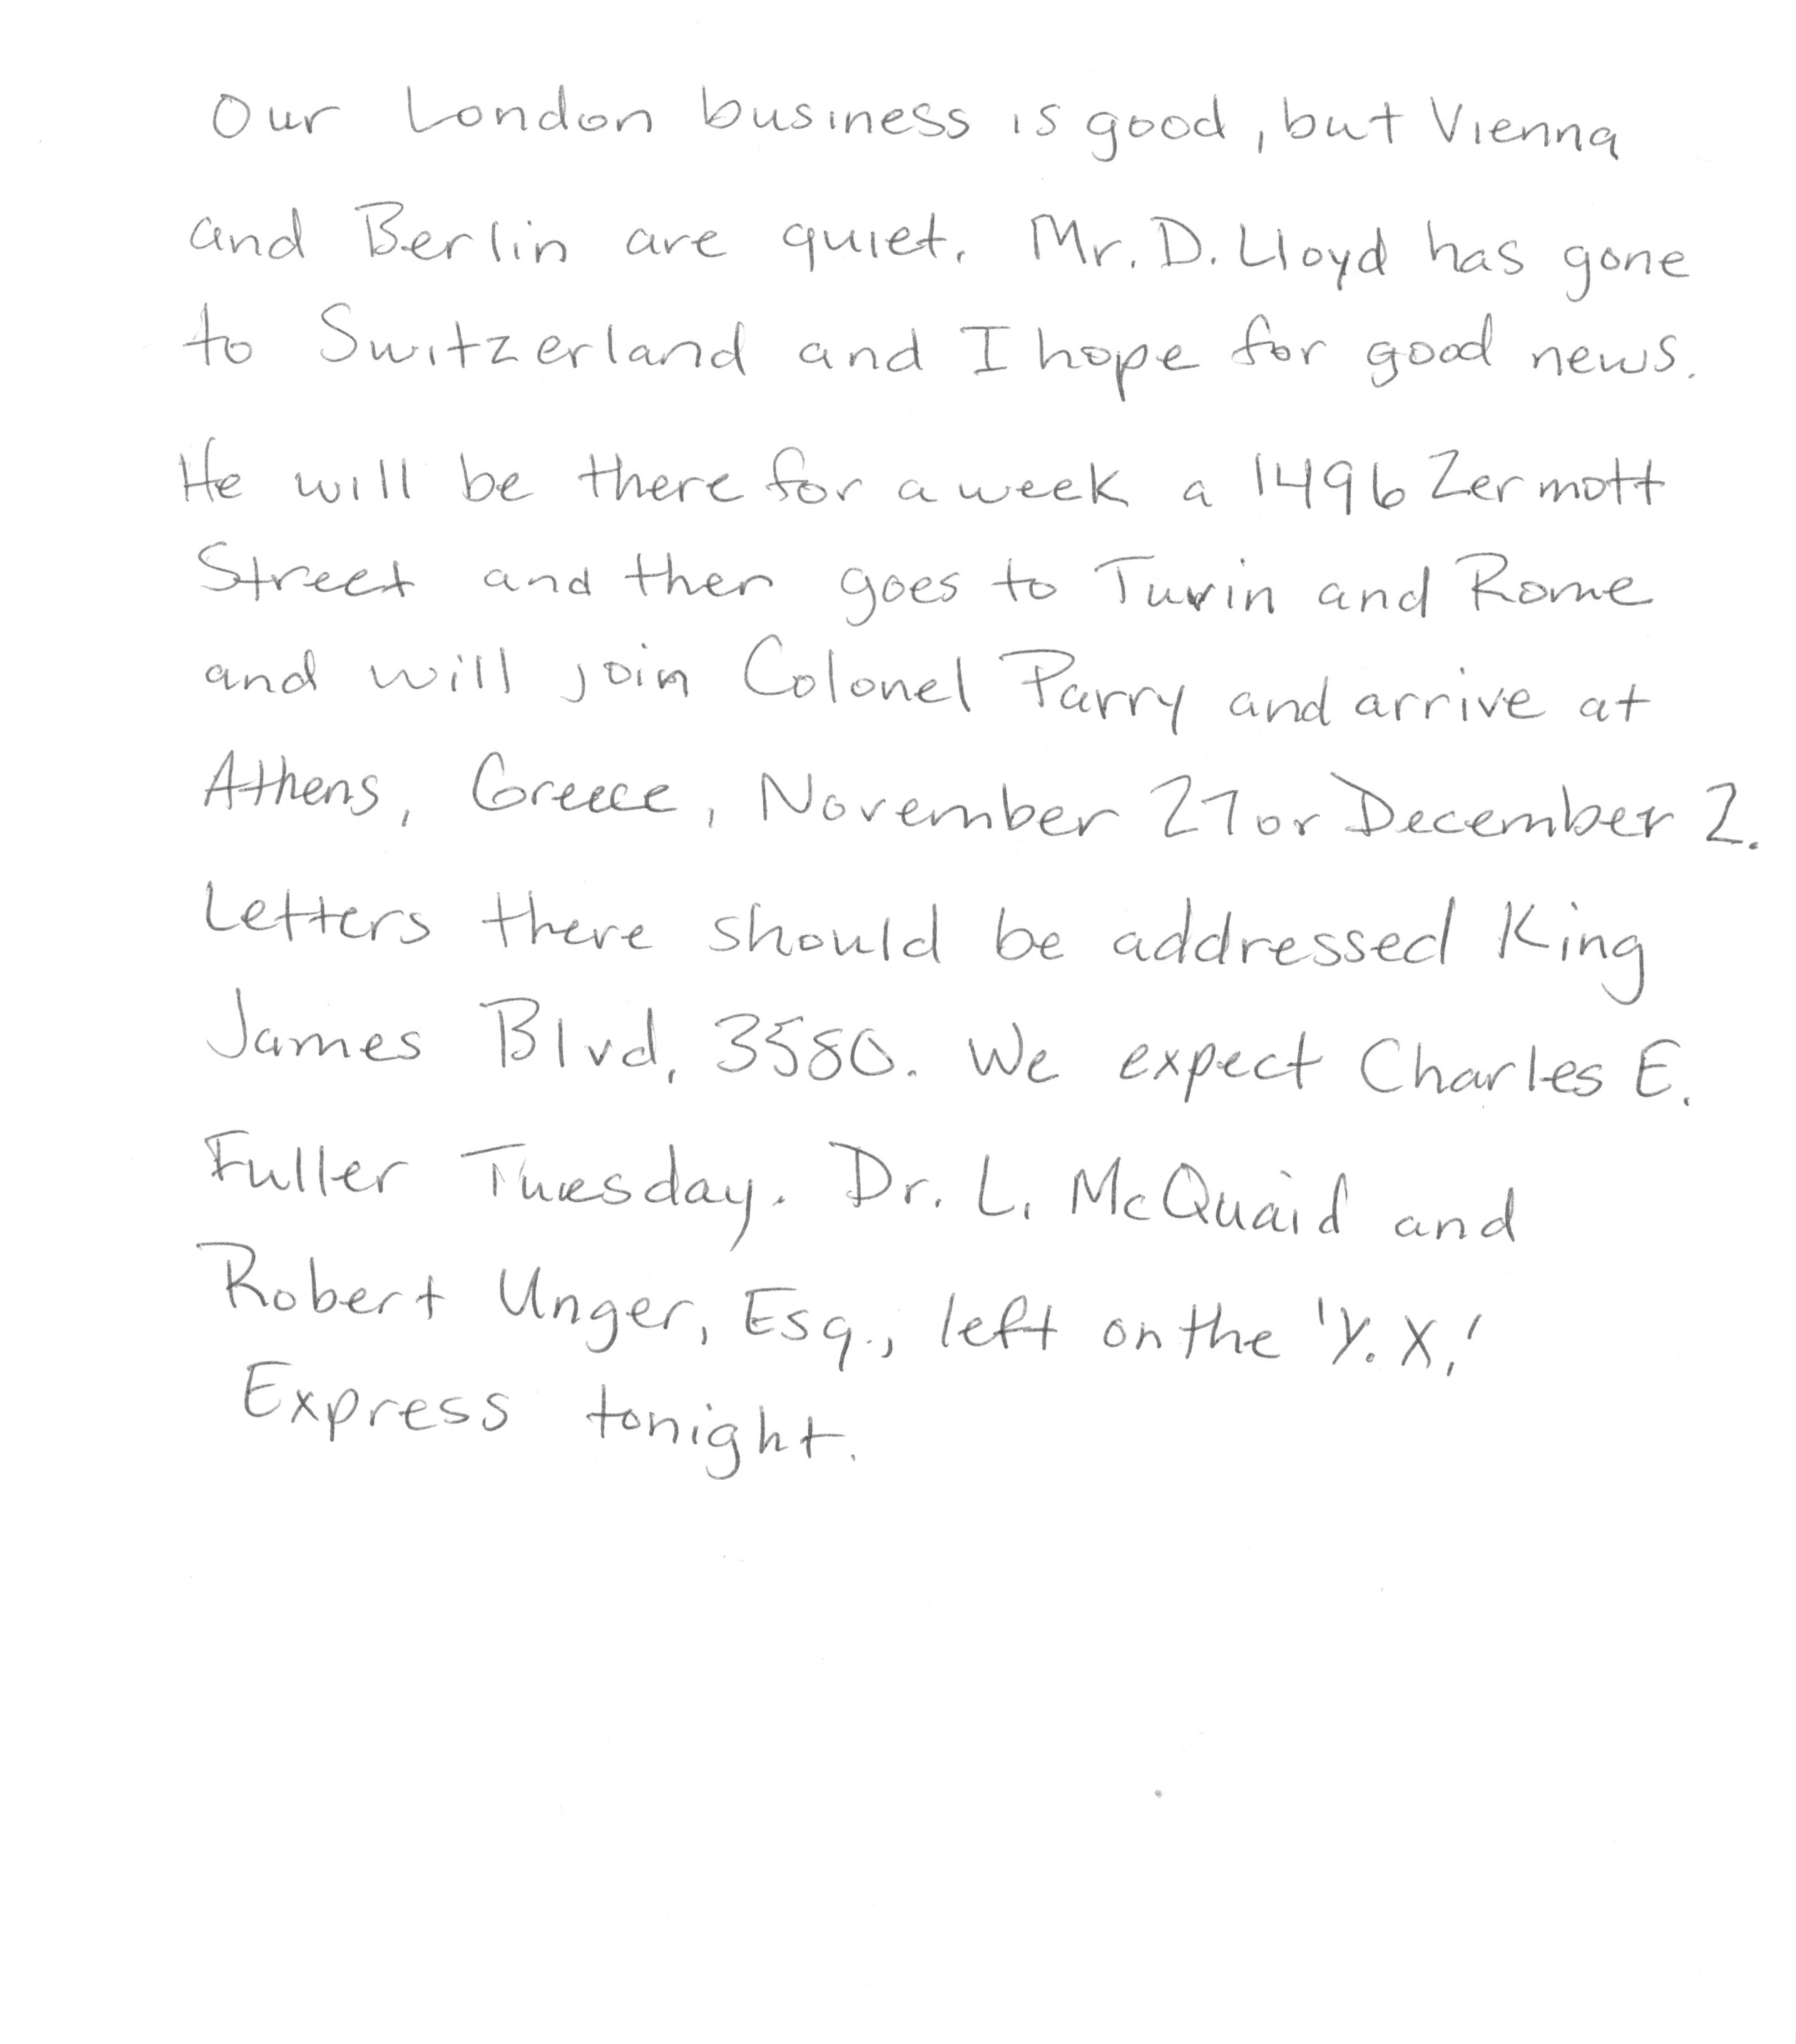 Our London business is good, but Vienna
and Berlin are quiet. Mr. D. Lloyd has gone
to Switzerland and I hope for good news.
He will be there for a week a 1496 Zermott
Street and then goes to Turin and Rome
and will join Colonel Parry and arrive at
Athens, Greece, November 27 or December 2.
Letters there should be addressed King
James Blvd, 3580. We expect Charles E.
Fuller Tuesday. Dr. L. McQuaid and
Robert Unger, Esq., left on the 'Y. X.'
Express tonight.